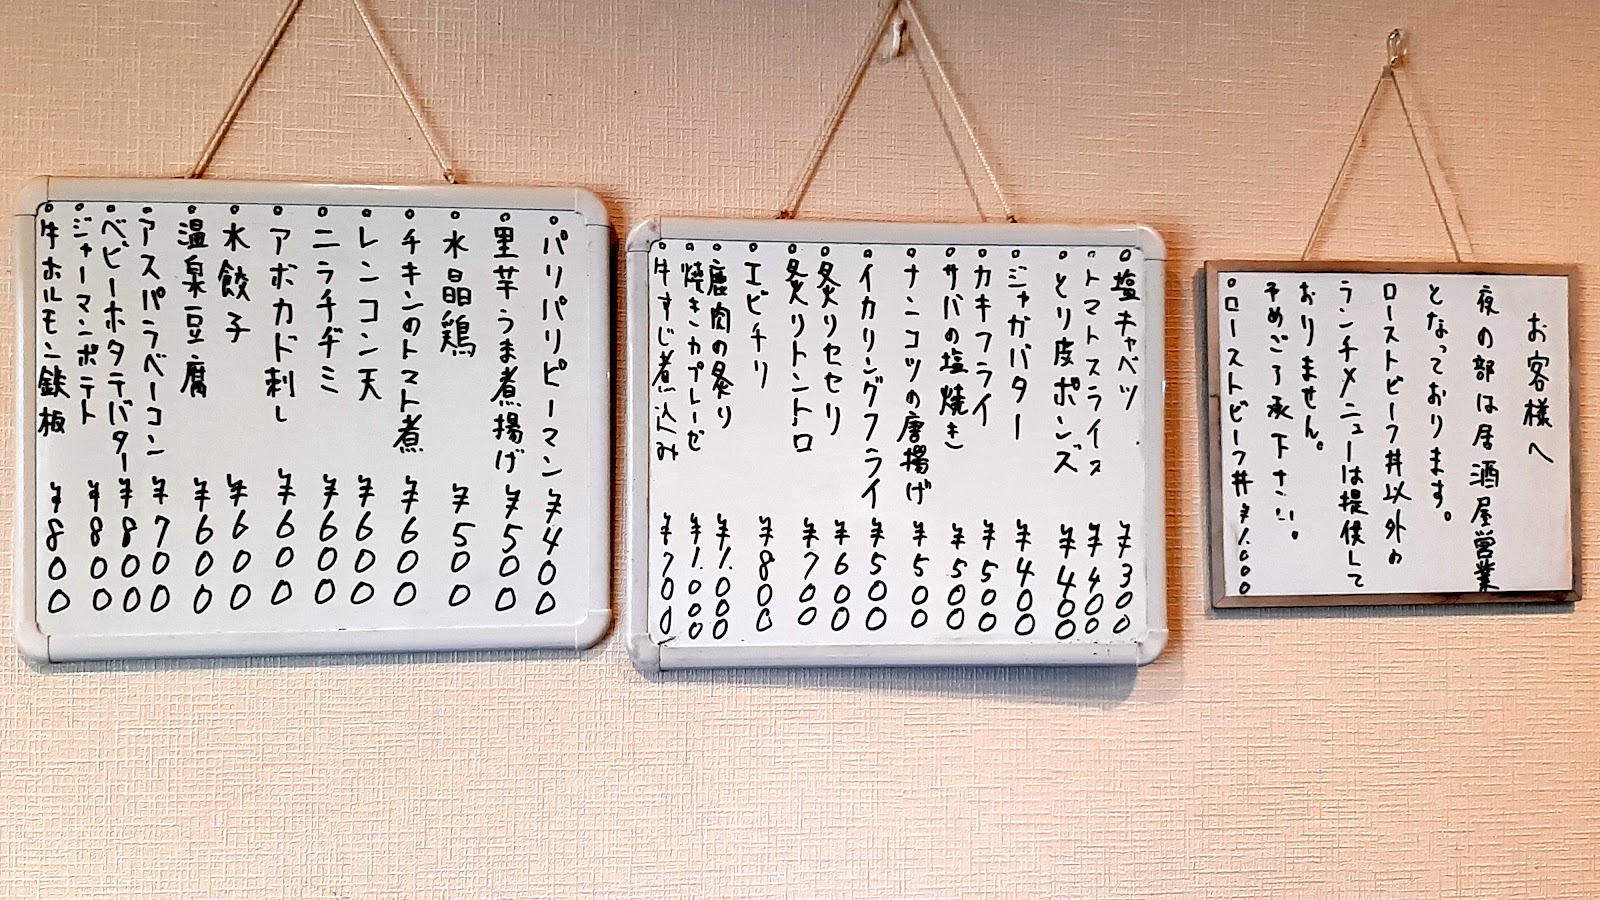 お客様へ
夜の部は居酒屋営業
となっております。
ローストビーフ丼以外の
ランチメニューは提供して
おりません。
予めご了承下さい。
○ローストビーフ丼 ¥1.000
○塩キャベツ ¥300
○トマトスライス ¥400
○とり皮ポンズ ¥400
○ジャガバター ¥400
○カキフライ ¥500
○サバの塩焼き ¥500
○ナンコツの唐揚げ ¥500
○イカリングフライ ¥500
○炙りセセリ ¥600
○炙りトントロ ¥700
○エビチリ ¥800
○鹿肉の炙り ¥1.000
○焼きカプレーゼ ¥1.000
○牛すじ煮込み ¥700
○パリパリピーマン ¥400
○里芋うま煮揚げ ¥500
○水晶鶏 ¥500
○チキンのトマト煮 ¥600
○レンコン天 ¥600
○ニラチヂミ ¥600
○アボカド刺し ¥600
○水餃子 ¥600
○温泉豆腐 ¥600
○アスパラベーコン ¥700
○ベビーホタテバター ¥800
○ジャーマンポテト ¥800
○牛ホルモン鉄板 ¥800